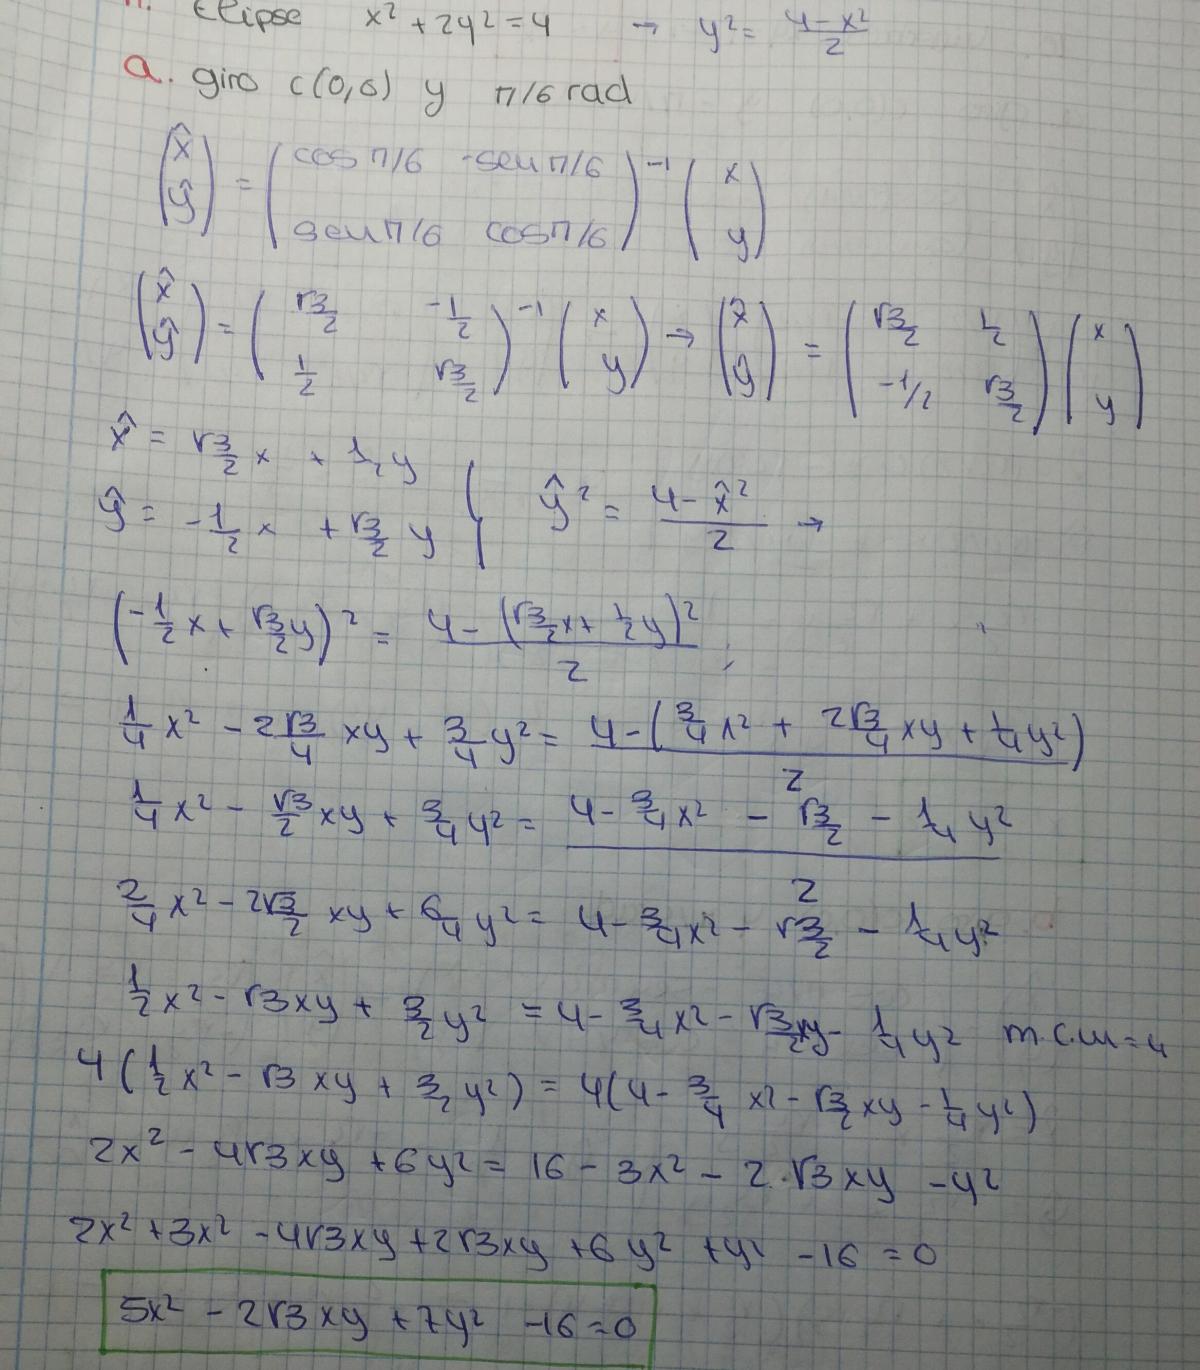 Elipse x² + 2y² = 4 → y² = (4 - x²)/2
a. giro c(0,0) y π/6 rad
(x̂ ŷ) = (cos π/6 -sen π/6 ; sen π/6 cos π/6)⁻¹ (x y)
(x̂ ŷ) = (√3/2 -1/2 ; 1/2 √3/2)⁻¹ (x y) → (x̂ ŷ) = (√3/2 1/2 ; -1/2 √3/2) (x y)
x̂ = √3/2 x + 1/2 y
ŷ = -1/2 x + √3/2 y } ŷ² = (4 - x̂²)/2 →
(-1/2 x + √3/2 y)² = (4 - (√3/2 x + 1/2 y)²)/2 ;
1/4 x² - 2√3/4 xy + 3/4 y² = (4 - (3/4 x² + 2√3/4 xy + 1/4 y²))/2
1/4 x² - √3/2 xy + 3/4 y² = (4 - 3/4 x² - √3/2 - 1/4 y²)/2
2/4 x² - 2√3/2 xy + 6/4 y² = 4 - 3/4 x² - √3/2 - 1/4 y²
1/2 x² - √3 xy + 3/2 y² = 4 - 3/4 x² - √3/2 xy - 1/4 y² m.c.m = 4
4(1/2 x² - √3 xy + 3/2 y²) = 4(4 - 3/4 x² - √3/2 xy - 1/4 y²)
2x² - 4√3 xy + 6y² = 16 - 3x² - 2·√3 xy - y²
2x² + 3x² - 4√3 xy + 2√3 xy + 6y² + y² - 16 = 0
5x² - 2√3 xy + 7y² - 16 = 0